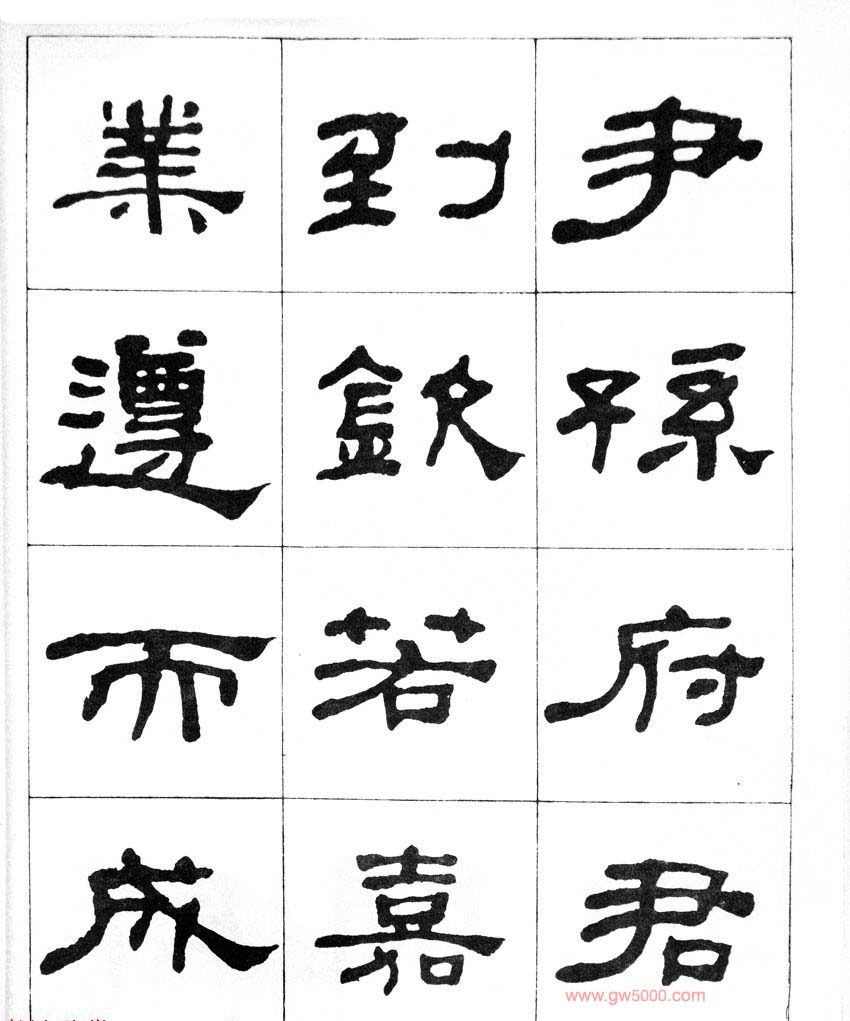 尹孫府君
到欽若嘉
業遵而成
www.gw5000.com